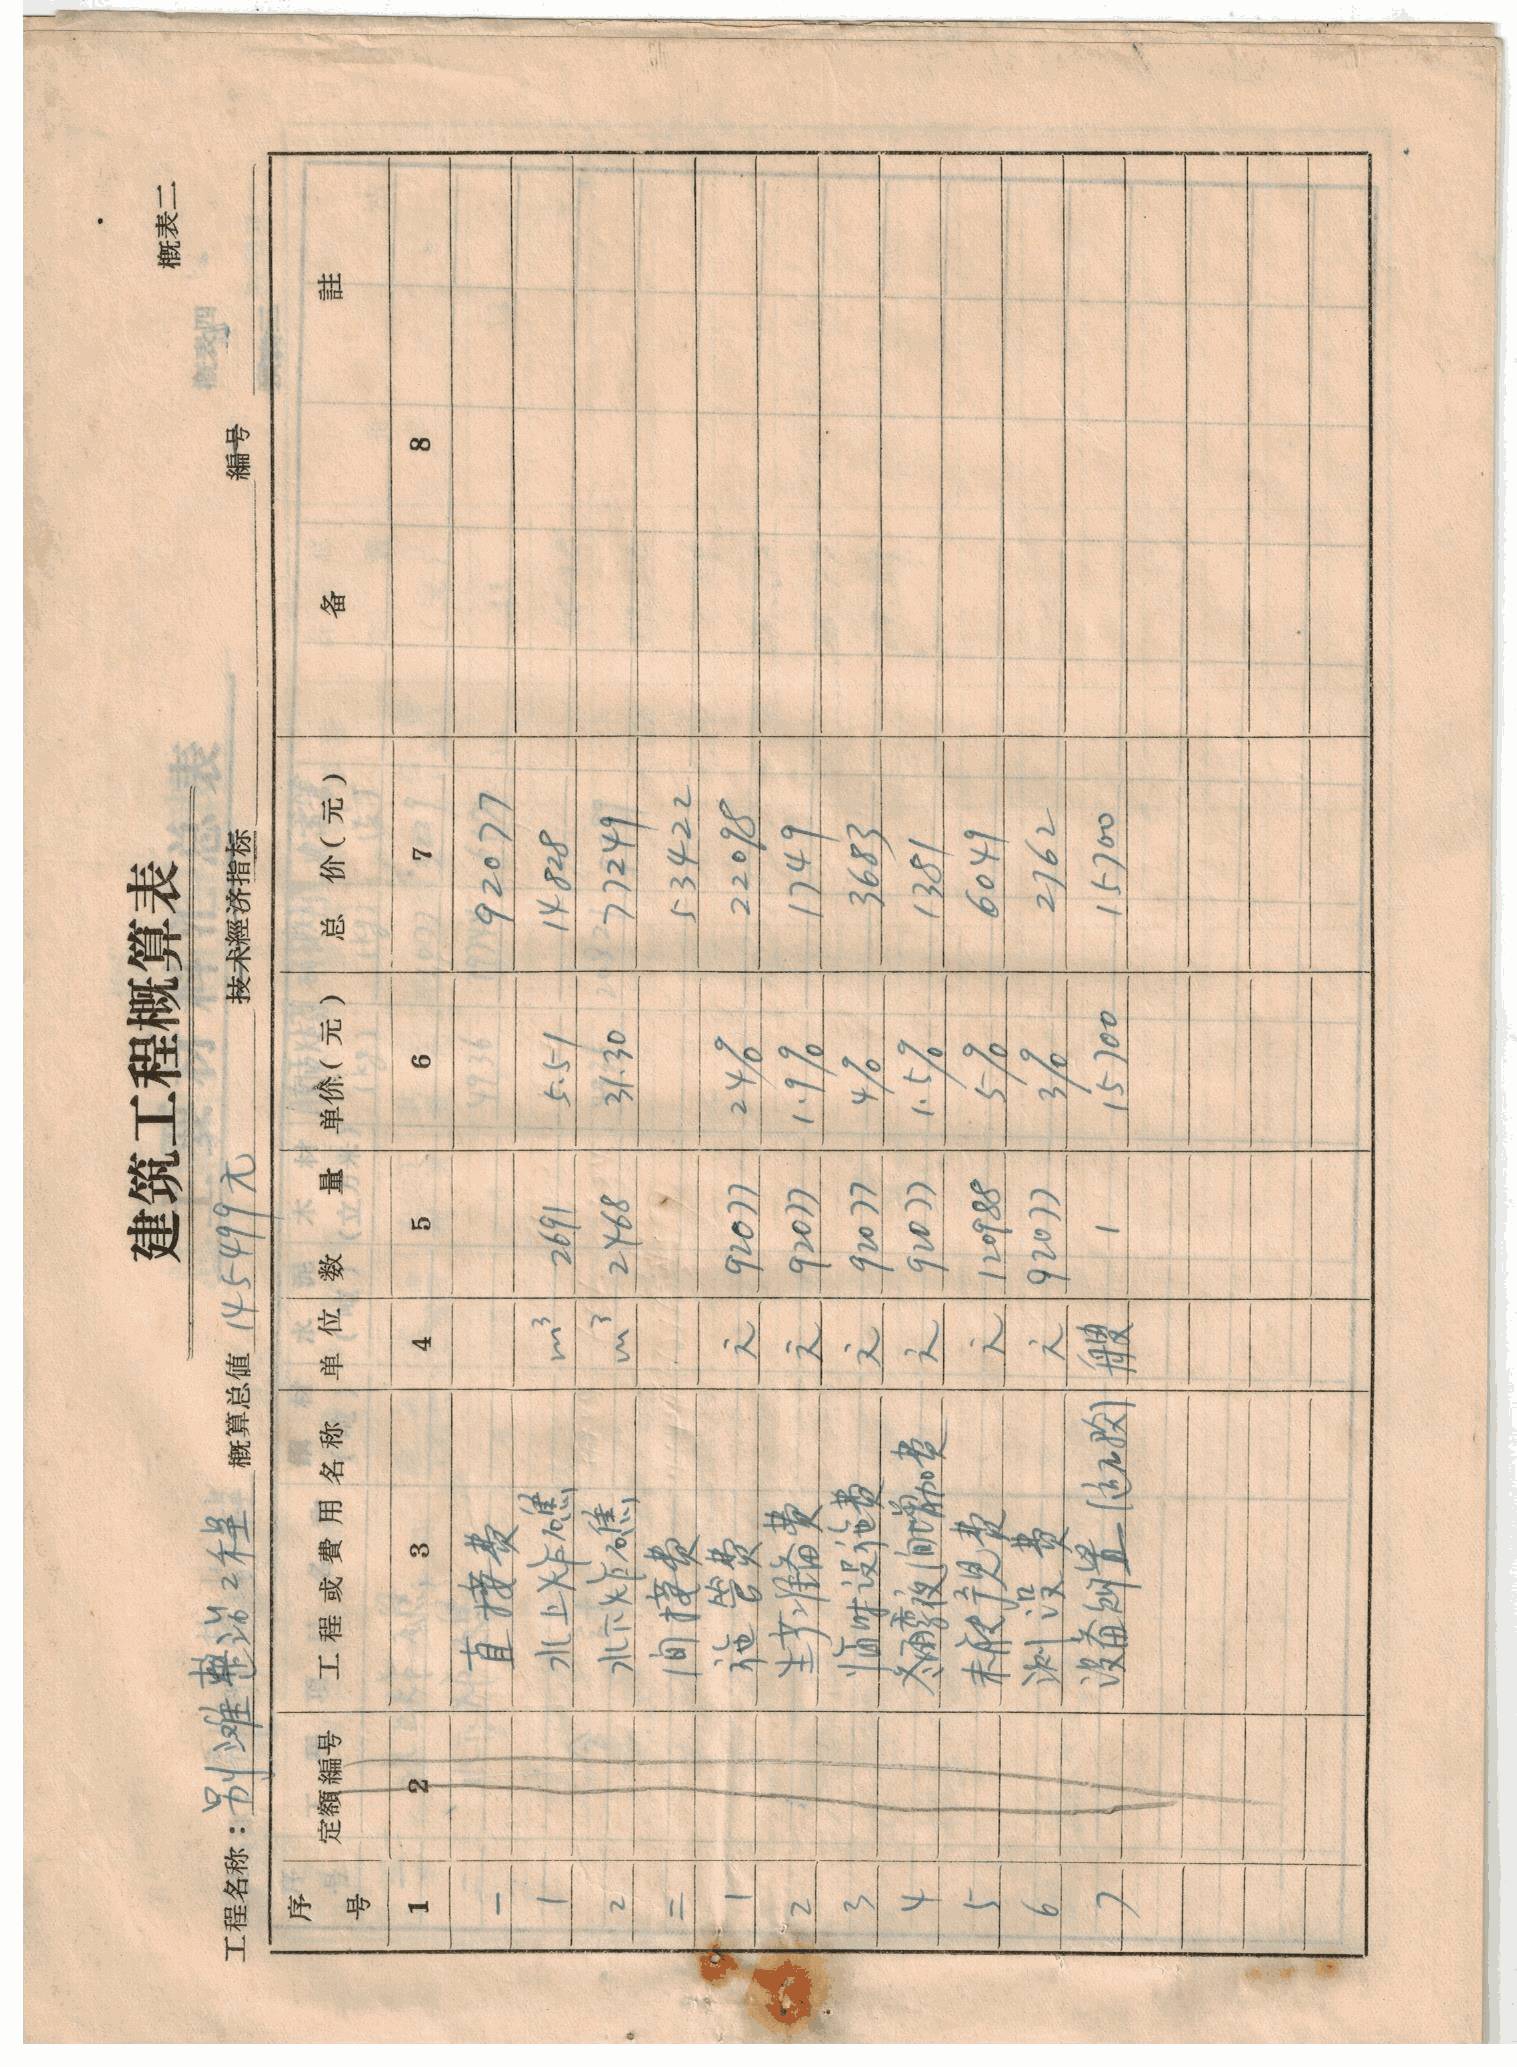 概表二
建筑工程概算表
工程名称：别滩整治工程 概算总值 145499元 技术經济指标 編号
序号 定額編号 工程或費用名称 单位 数量 单价(元) 总价(元) 备註
1 2 3 4 5 6 7 8
一 直接费 92077
1 水上炸礁 m³ 2691 5.51 14828
2 水下炸礁 m³ 2468 31.30 77249
二 间接费 53422
1 施管费 元 92077 24% 22098
2 生产准备费 元 92077 1.9% 1749
3 临时设施费 元 92077 4% 3683
4 冬雨季夜间增加费 元 92077 1.5% 1381
5 未预见费 元 120988 5% 6049
6 测设费 元 92077 3% 2762
7 设备购置 艘 1 15700 15700